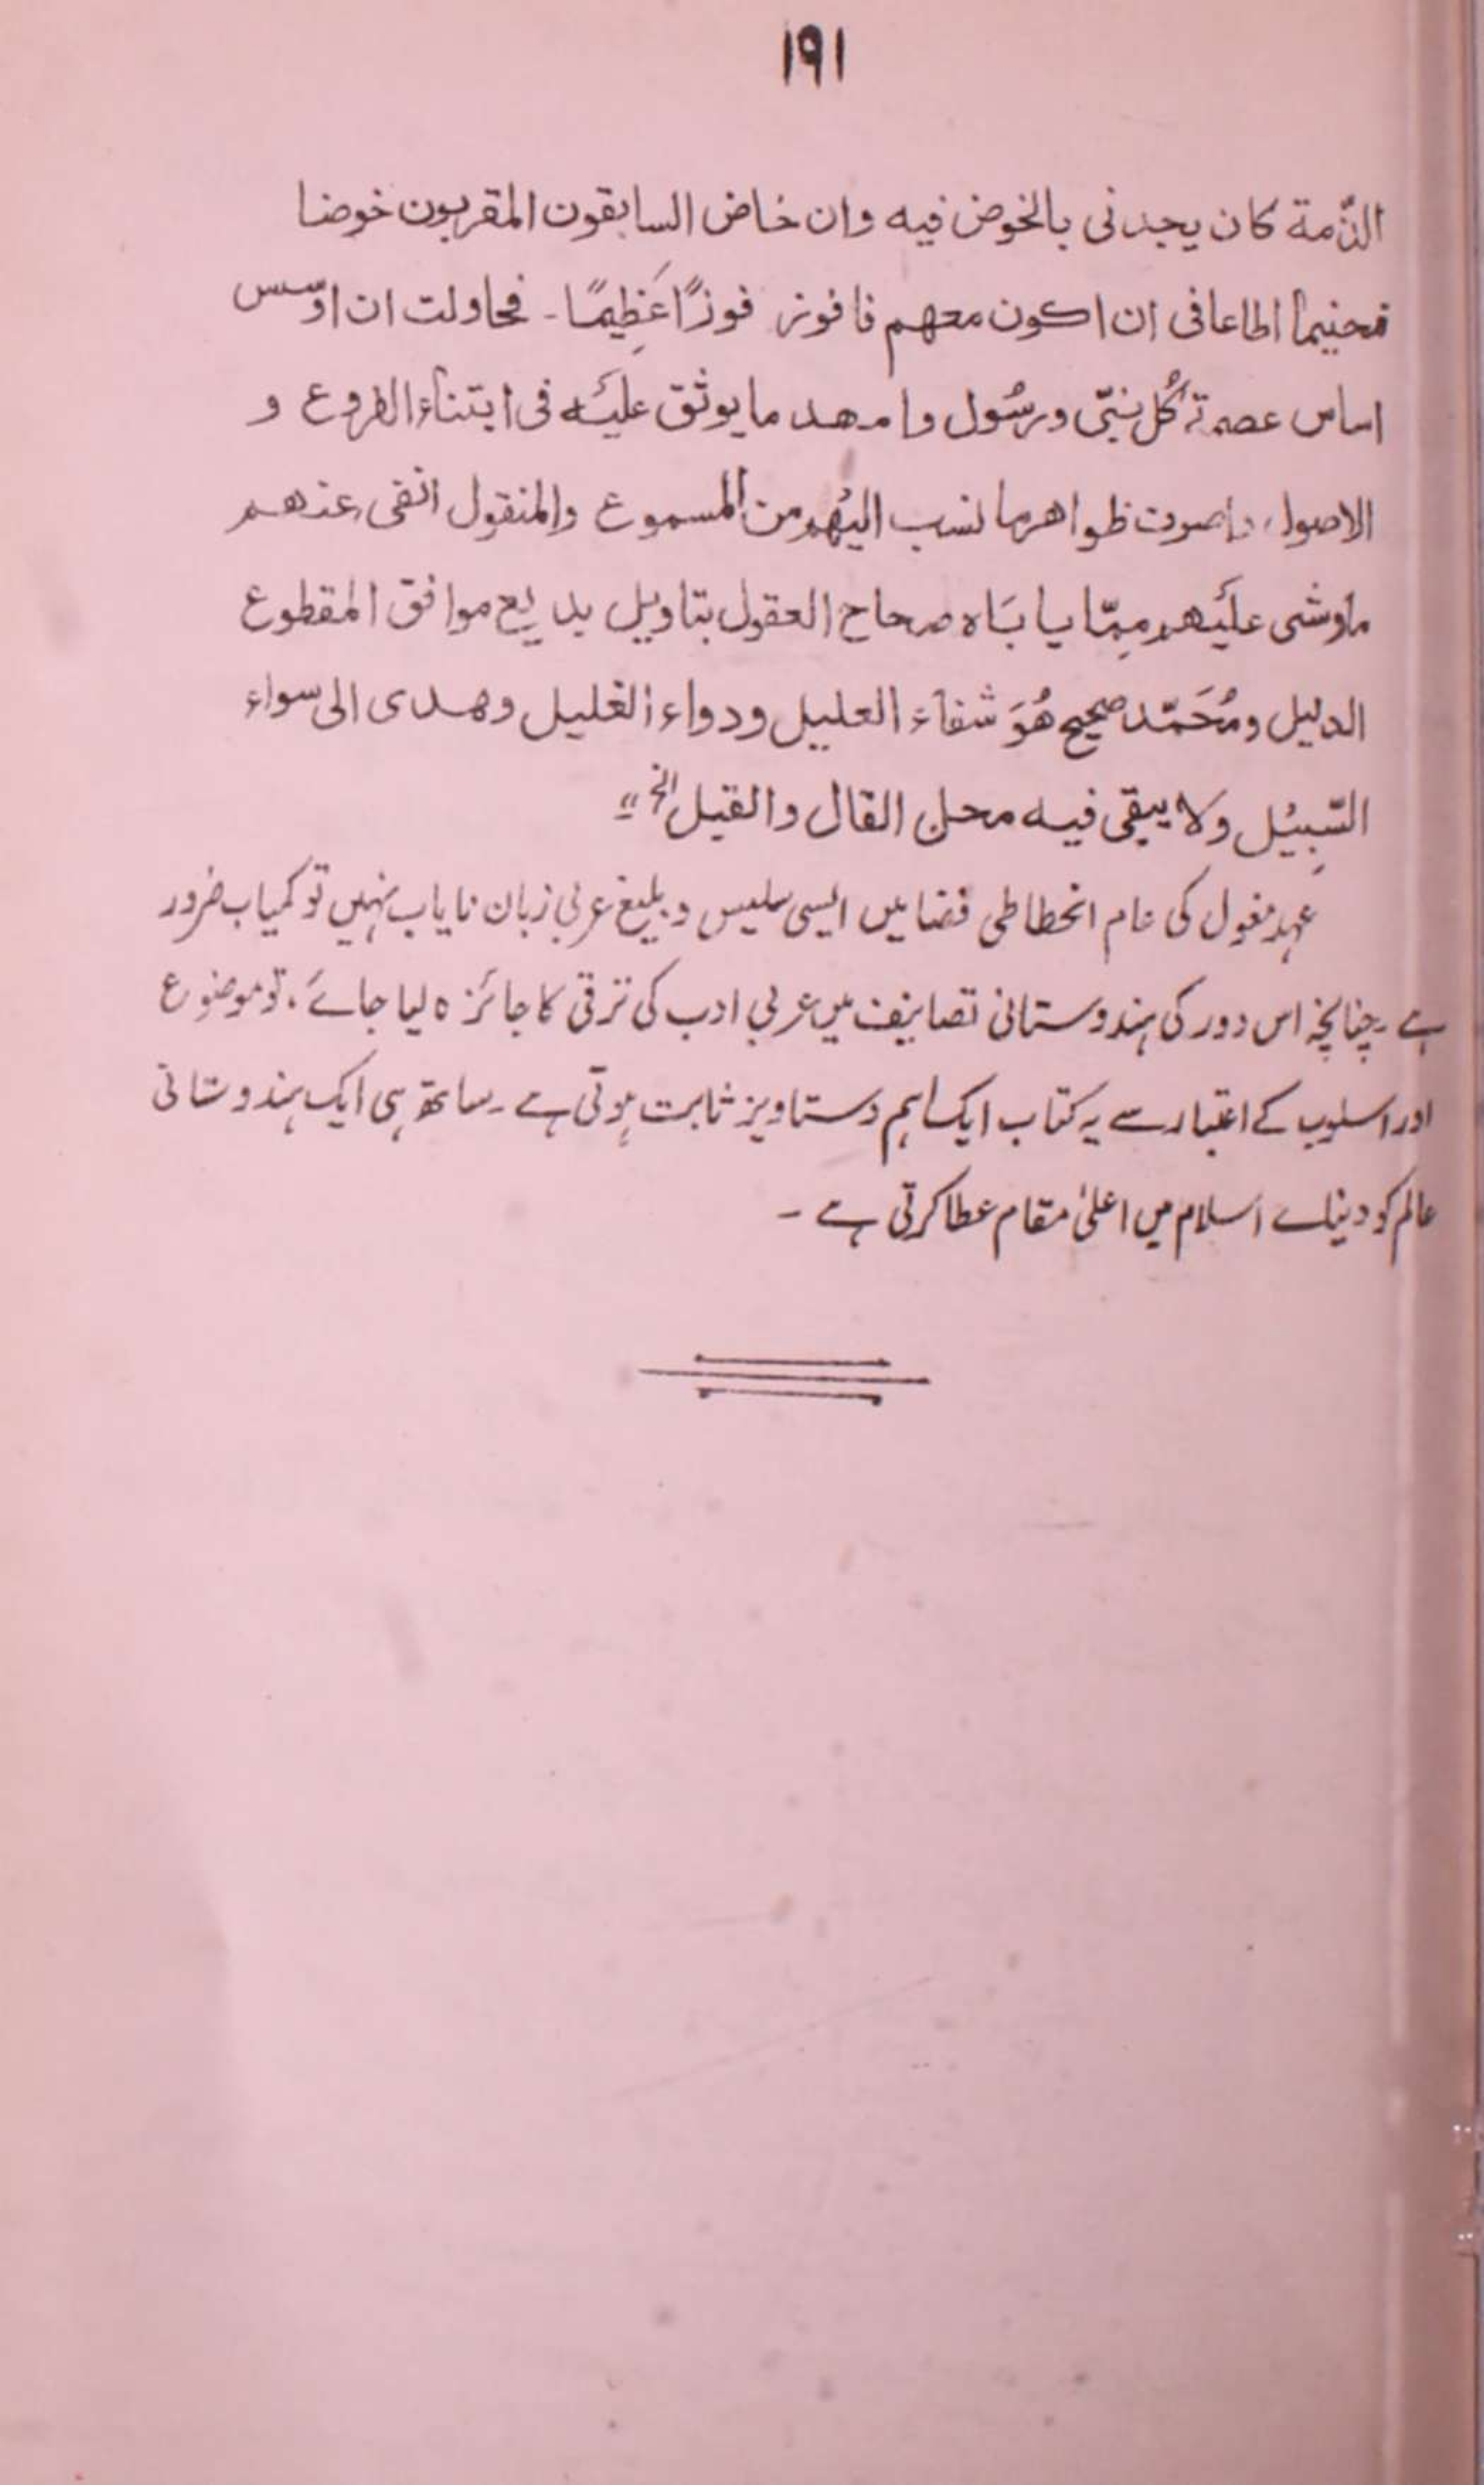 ١٩١
الذّمة كان يجدنى بالخوض فيه وان خاض السابقون المقربون خوضا
اطاعا فى ان اكون معهم فافوز فوزًا عَظِيمًا - فحاولت ان اوّسس
اساس عصمة كُل نبىّ ورسُول وامهد ما يوثق عليَه فى ابتناء الفروع و
الاصول ظواهر ما نسب اليهُم من المسموع والمنقول انفى عنهم
ماوشى عليَهم مِمّا يابَاه صحاح العقول بتاويل بديع موافق المقطوع
الدليل ومُحَمّد صحيح هُوَ شفاء العليل ودواء الغليل وهدى الى سواء
السّبِيُل ولا يبقى فيه محل القال والقيل الخ"
عہد مغول کی عام انحطاطی فضا میں ایسی سلیس و بلیغ عربی زبان نایاب نہیں تو کمیاب ضرور
ہے ۔ چنانچہ اس دور کی ہندوستانی تصانیف میں عربی ادب کی ترقی کا جائزہ لیا جائے ، تو موضوع
اور اسلوب کے اعتبار سے یہ کتاب ایک اہم دستاویز ثابت ہوتی ہے ۔ ساتھ ہی ایک ہندوستانی
عالم کو دنیاے اسلام میں اعلیٰ مقام عطا کرتی ہے ۔